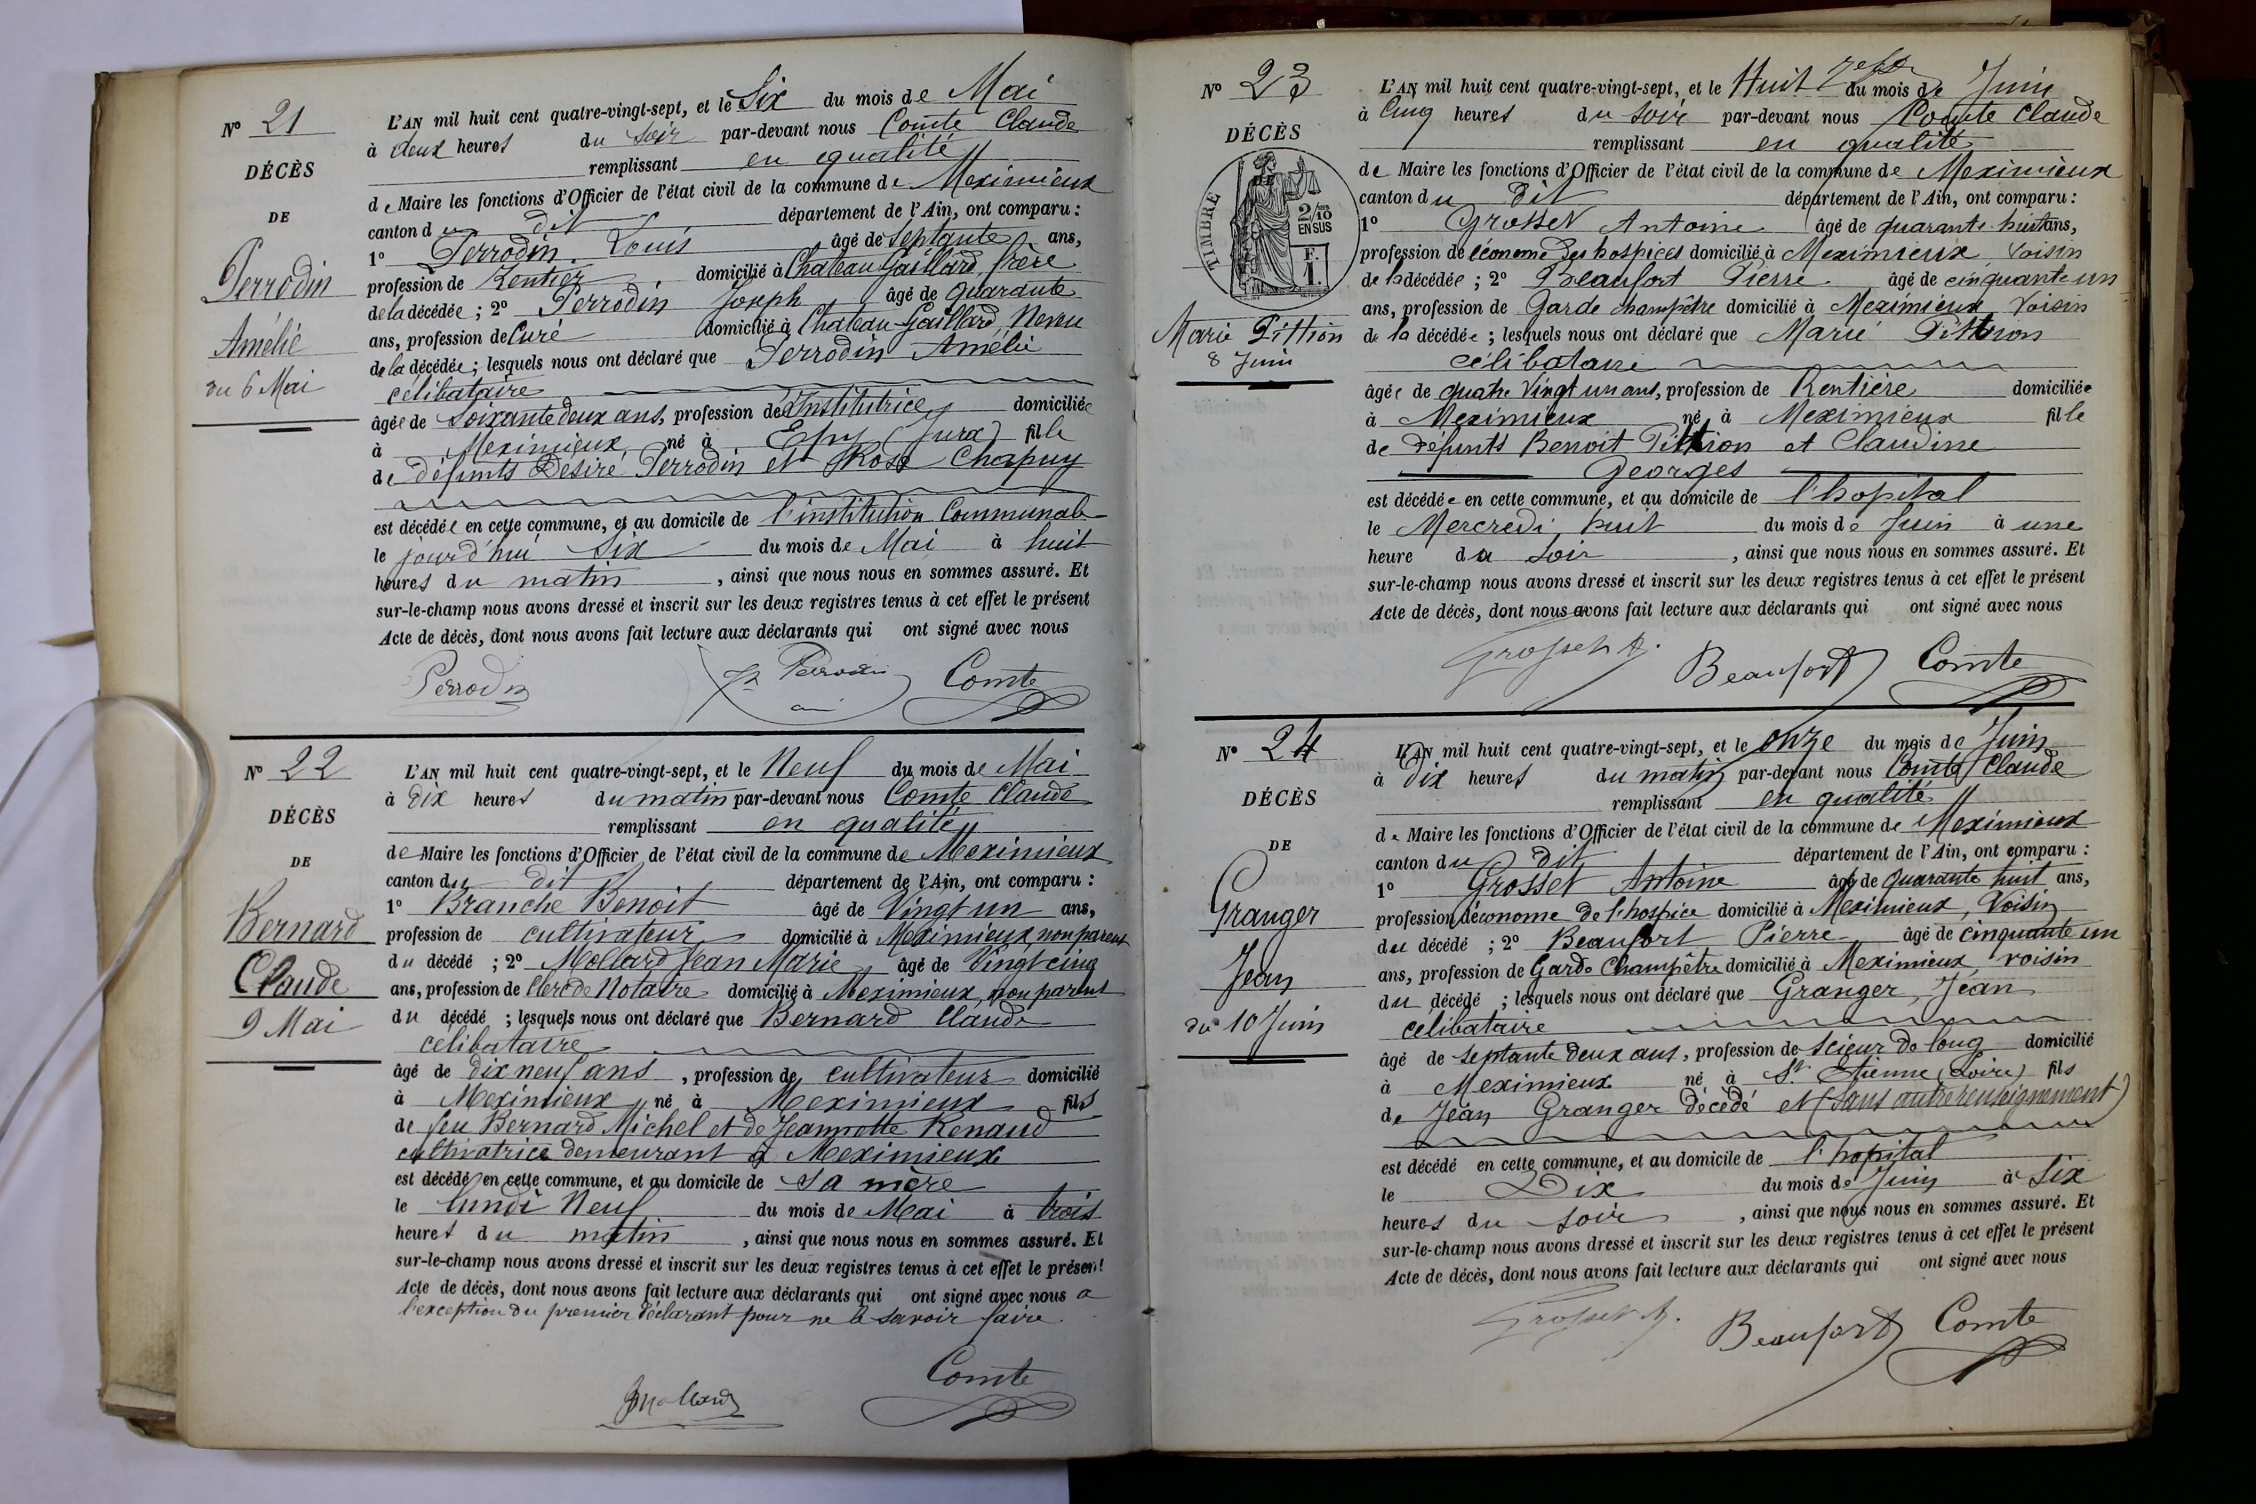 N° 21
DÉCÈS
DE
Perrodin
Amélie
du 6 Mai
L'AN mil huit cent quatre-vingt-sept, et le Six du mois de Mai
à deux heures du soir par-devant nous Comte Claude
remplissant en qualité
de Maire les fonctions d'Officier de l'état civil de la commune de Meximieux
canton du dit département de l'Ain, ont comparu :
1° Perrodin Louis âgé de septante ans,
profession de Rentier domicilié à Chateau Gaillard, frère
de la décédée ; 2° Perrodin Joseph âgé de quarante
ans, profession de Curé domicilié à Chateau-Gaillard, Neveu
de la décédée ; lesquels nous ont déclaré que Perrodin Amélie
célibataire
âgée de Soixante deux ans, profession de Institutrice domiciliée
à Meximieux né à (Jura) fille
de défunts Désiré Perrodin et Rose Chapuy
est décédée en cette commune, et au domicile de l'institution Communale
le jourd'hui Six du mois de Mai à huit
heures du matin , ainsi que nous nous en sommes assuré. Et
sur-le-champ nous avons dressé et inscrit sur les deux registres tenus à cet effet le présent
Acte de décès, dont nous avons fait lecture aux déclarants qui ont signé avec nous
Perrodin Perrodin Comte
N° 22
DÉCÈS
DE
Bernard
Claude
9 Mai
L'AN mil huit cent quatre-vingt-sept, et le Neuf du mois de Mai
à dix heures du matin par-devant nous Comte Claude
remplissant en qualité
de Maire les fonctions d'Officier de l'état civil de la commune de Meximieux
canton du dit département de l'Ain, ont comparu :
1° Branche Benoit âgé de Vingt un ans,
profession de cultivateur domicilié à Meximieux, non parent
du décédé ; 2° Mollard Jean Marie âgé de Vingt cinq
ans, profession de Clerc de Notaire domicilié à Meximieux, non parent
du décédé ; lesquels nous ont déclaré que Bernard Claude
célibataire
âgé de dix neuf ans , profession de cultivateur domicilié
à Meximieux né à Meximieux fils
de feu Bernard Michel et de Jeannette Renaud
cultivatrice demeurant à Meximieux
est décédé en cette commune, et au domicile de sa mère
le lundi Neuf du mois de Mai à trois
heures du matin , ainsi que nous nous en sommes assuré. Et
sur-le-champ nous avons dressé et inscrit sur les deux registres tenus à cet effet le présent
Acte de décès, dont nous avons fait lecture aux déclarants qui ont signé avec nous a
l'exception du premier déclarant pour ne le savoir faire.
Mollard Comte
N° 23
DÉCÈS
TIMBRE
2/10
EN SUS
F.
1.
Marie Pittion
8 Juin
L'AN mil huit cent quatre-vingt-sept, et le Huit du mois de Juin
à Cinq heures du soir par-devant nous Comte Claude
remplissant en qualité
de Maire les fonctions d'Officier de l'état civil de la commune de Meximieux
canton du dit département de l'Ain, ont comparu :
1° Grosset Antoine âgé de quarante-huit ans,
profession de économe des hospices domicilié à Meximieux, Voisin
de la décédée ; 2° Beaufort Pierre âgé de cinquante un
ans, profession de Garde champêtre domicilié à Meximieux, Voisin
de la décédée ; lesquels nous ont déclaré que Marie Pittion
célibataire
âgée de quatre Vingt un ans, profession de Rentière domiciliée
à Meximieux né à Meximieux fille
de défunts Benoit Pittion et Claudine
Georges
est décédée en cette commune, et au domicile de l'hopital
le Mercredi huit du mois de Juin à une
heure du soir , ainsi que nous nous en sommes assuré. Et
sur-le-champ nous avons dressé et inscrit sur les deux registres tenus à cet effet le présent
Acte de décès, dont nous avons fait lecture aux déclarants qui ont signé avec nous
Grosset A. Beaufort Comte
N° 24
DÉCÈS
DE
Granger
Jean
du 10 Juin
L'AN mil huit cent quatre-vingt-sept, et le onze du mois de Juin
à Dix heures du matin par-devant nous Comte Claude
remplissant en qualité
de Maire les fonctions d'Officier de l'état civil de la commune de Meximieux
canton du dit département de l'Ain, ont comparu :
1° Grosset Antoine âgé de quarante huit ans,
profession d'économe de l'hospice domicilié à Meximieux, Voisin
du décédé ; 2° Beaufort Pierre âgé de cinquante un
ans, profession de Garde Champêtre domicilié à Meximieux, voisin
du décédé ; lesquels nous ont déclaré que Granger, Jean
célibataire
âgé de septante deux ans, profession de Scieur de long domicilié
à Meximieux né à St Etienne (Loire) fils
de Jean Granger décédé et (sans autre renseignement)
est décédé en cette commune, et au domicile de l'hopital
le Dix du mois de Juin à Six
heures du soir , ainsi que nous nous en sommes assuré. Et
sur-le-champ nous avons dressé et inscrit sur les deux registres tenus à cet effet le présent
Acte de décès, dont nous avons fait lecture aux déclarants qui ont signé avec nous
Grosset A. Beaufort Comte